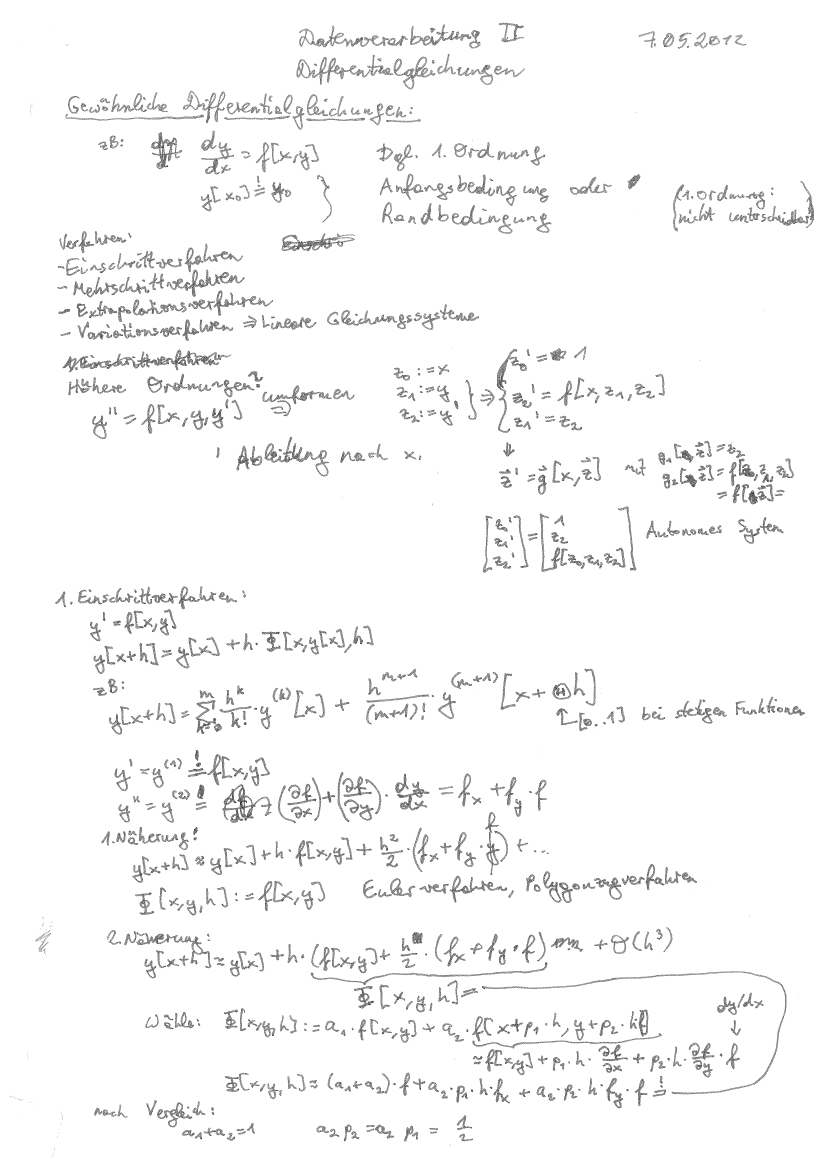 Datenverarbeitung II 7.05.2012
Differentialgleichungen
Gewöhnliche Differentialgleichungen:
zB: dy/dx = f[x,y] Dgl. 1. Ordnung
y[x₀] =! y₀ } Anfangsbedingung oder (1. Ordnung:
Randbedingung nicht unterscheidbar)
Verfahren:
- Einschrittverfahren
- Mehrschrittverfahren
- Extrapolationsverfahren
- Variationsverfahren ⇒ Lineare Gleichungssysteme
1. Einschrittverfahren
Höhere Ordnungen?
y'' = f[x,y,y'] umformen ⇒ z₀ := x z₁ := y z₂ := y' } ⇒ { z₀' = 1 z₂' = f[x,z₁,z₂] z₁' = z₂
' Ableitung nach x.
⇓
z⃗' = g⃗[x,z⃗] mit g₁[z⃗] = z₂
g₂[z⃗] = f[z₀,z₁,z₂]
= f[z⃗] =
[z₀' z₁' z₂'] = [1 z₂ f[z₀,z₁,z₂]] Autonomes System
1. Einschrittverfahren:
y' = f[x,y]
y[x+h] = y[x] + h · Φ[x,y[x],h]
zB:
y[x+h] = Σ_{k=0}^{m} h^k/k! · y^(k)[x] + h^{m+1}/(m+1)! · y^(m+1)[x + Θh]
↑[0..1] bei stetigen Funktionen
y' = y^(1) =! f[x,y]
y'' = y^(2) =! df/dx = (∂f/∂x) + (∂f/∂y) · dy/dx = f_x + f_y · f
1. Näherung!
y[x+h] ≈ y[x] + h · f[x,y] + h²/2 · (f_x + f_y · f) + ...
Φ[x,y,h] := f[x,y] Eulerverfahren, Polygonzugverfahren
2. Näherung:
y[x+h] ≈ y[x] + h · (f[x,y] + h/2 · (f_x + f_y · f) + O(h³)
Φ[x,y,h] =
Wähle: Φ[x,y,h] := a₁ · f[x,y] + a₂ · f[x+p₁·h, y+p₂·hf] dy/dx
↓
≈ f[x,y] + p₁·h · ∂f/∂x + p₂·h · ∂f/∂y · f
Φ[x,y,h] ≈ (a₁+a₂)·f + a₂·p₁·h·f_x + a₂·p₂·h·f_y·f =!
nach Vergleich:
a₁+a₂=1 a₂ p₂ = a₂ p₁ = 1/2